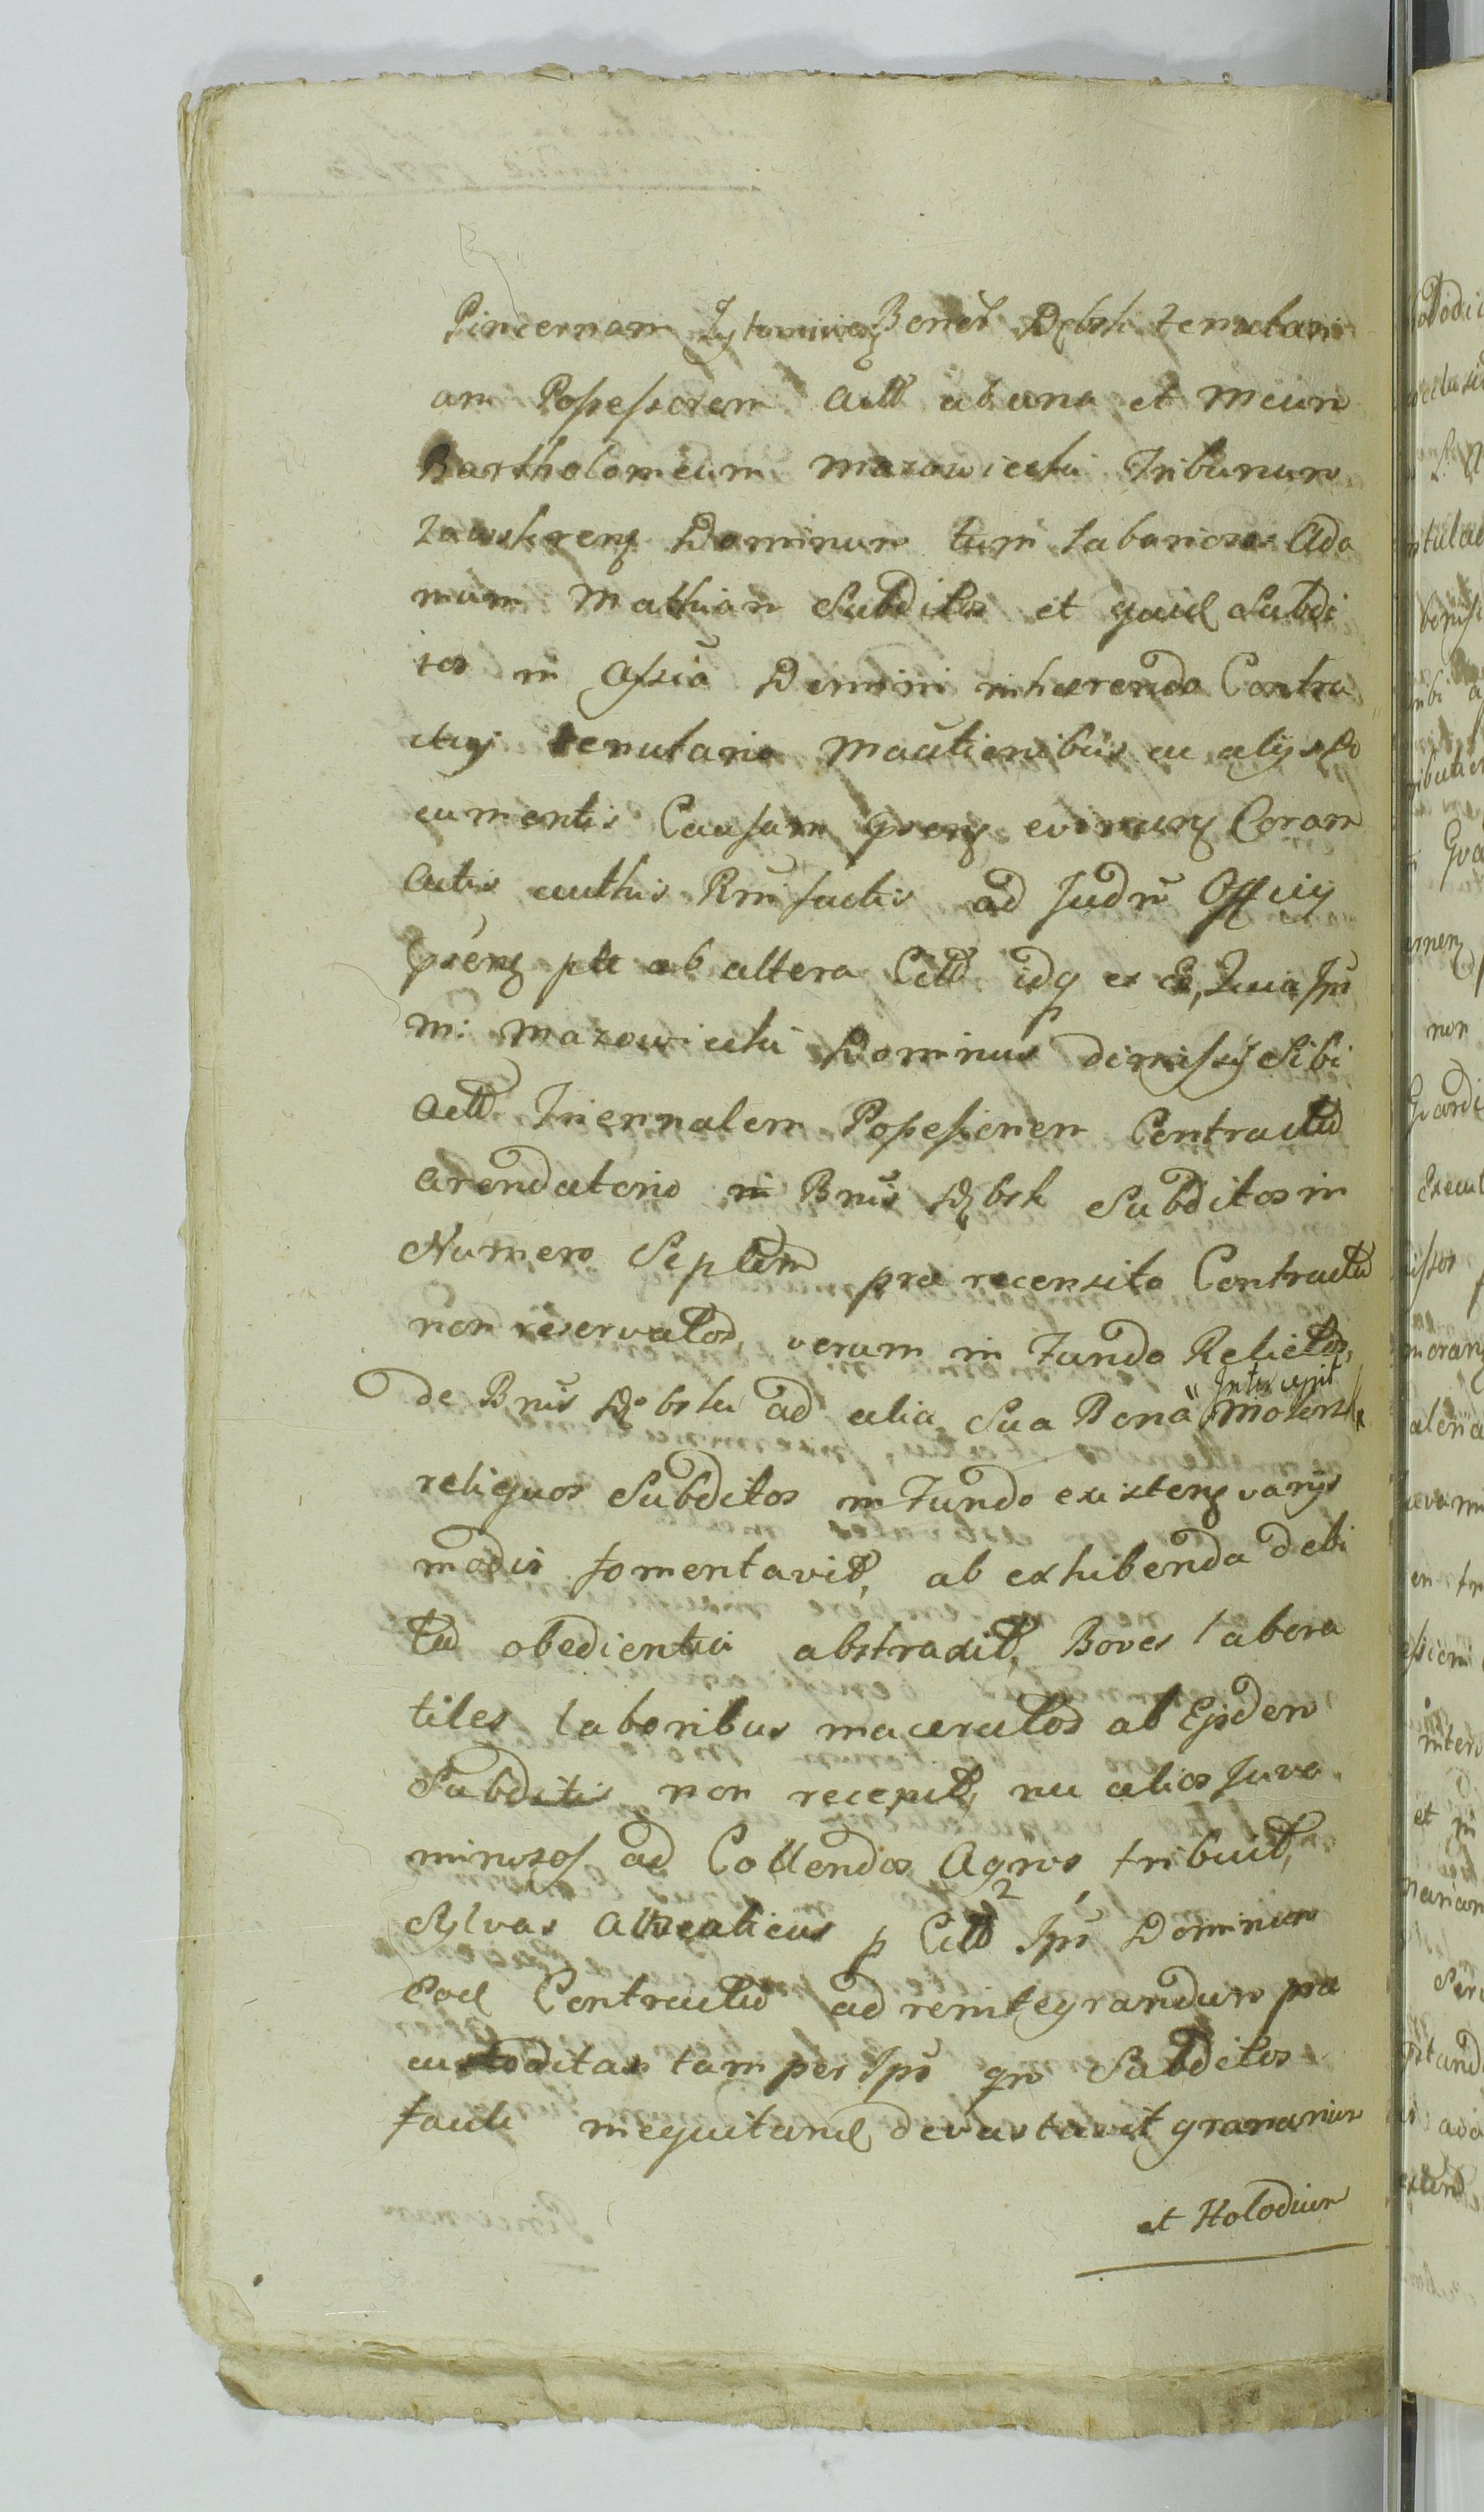 Pincernam Zytomirien Bonor Dębsk tenutari
am Possessorem Actt ab una et Meum
Bartholomeum Mazowiecki Tribunum
Zawskrens Dominum tum Laboriosos Ada
mum Mathiam Subditos et quid Subdi
tos in Assia Domini inhærendo Contra
ctuj tenutario Mactionibus ac alijs Do
cumentis Causam prens evinceng Coram
Actis authis Rmi factis ad Judm Officij
prens pte ab altera Citt idq ex Eo, Quia Ipse
M: Mazowiecki Dominus dimissis Sibi
actt Triennalem Possessionem Contractu
arendatorio in Bnis Dębsk Subditos in
Numero Septem præ recensito Contractu
non reservatos, verum in Fundo Relictos,
de Bnis Dębsku ad alia Sua Bona
Intercepit
reliquos Subditos in Fundo existeng varijs
modis fomentavit, ab exhibenda debi
ta obedientia abstraxit, Boves labora
tiles laboribus maceratos ab Eisdem
Subditis non recepit, nec alios Juve
minosos ad Collendos Agros tribuit,
Sylvas alvealicas p Citt Ipm Dominum
Eod Contractu ad reintegrandum præ
custoditas tam per Ipm qm Subditos
facili inequitand devastavit granarium
et Holodium